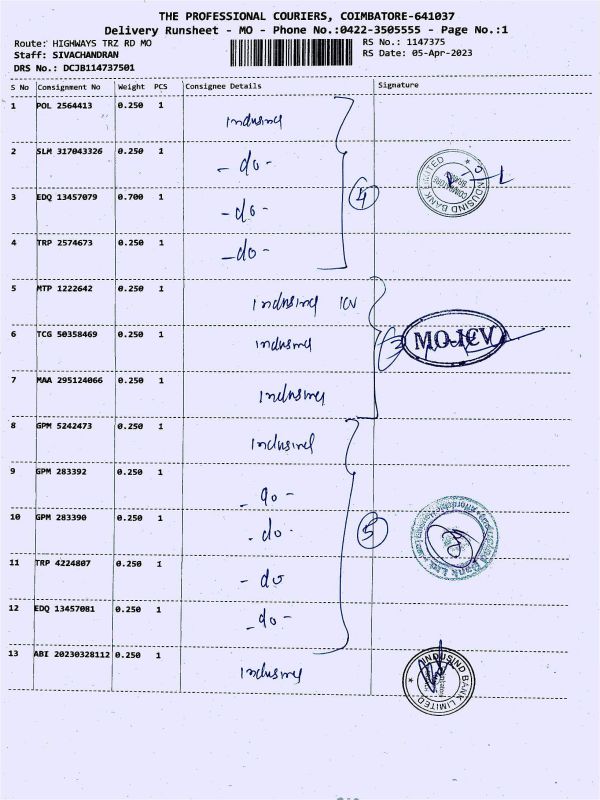 THE PROFESSIONAL COURIERS, COIMBATORE-641037
Delivery Runsheet - MO - Phone No.:0422-3505555 - Page No.:1
Route: HIGHWAYS TRZ RD MO RS No.: 1147375
Staff: SIVACHANDRAN RS Date: 05-Apr-2023
DRS No.: DCJB114737501
S No Consignment No Weight PCS Consignee Details Signature
1 POL 2564413 0.250 1 Indusind
2 SLM 317043326 0.250 1 - do -
3 EDQ 13457079 0.700 1 - do -
4
4 TRP 2574673 0.250 1 - do -
5 MTP 1222642 0.250 1 Indusind ICV
6 TCG 50358469 0.250 1 Indusind
3
MO.ICV
7 MAA 295124066 0.250 1 Indusind
8 GPM 5242473 0.250 1 Indusind
9 GPM 283392 0.250 1 - do -
10 GPM 283390 0.250 1 - do -
5
11 TRP 4224807 0.250 1 - do
12 EDQ 13457081 0.250 1 - do -
13 ABI 20230328112 0.250 1 Indusind
INDUSIND BANK LIMITED
COIMBATORE
INDUSIND BANK LIMITED